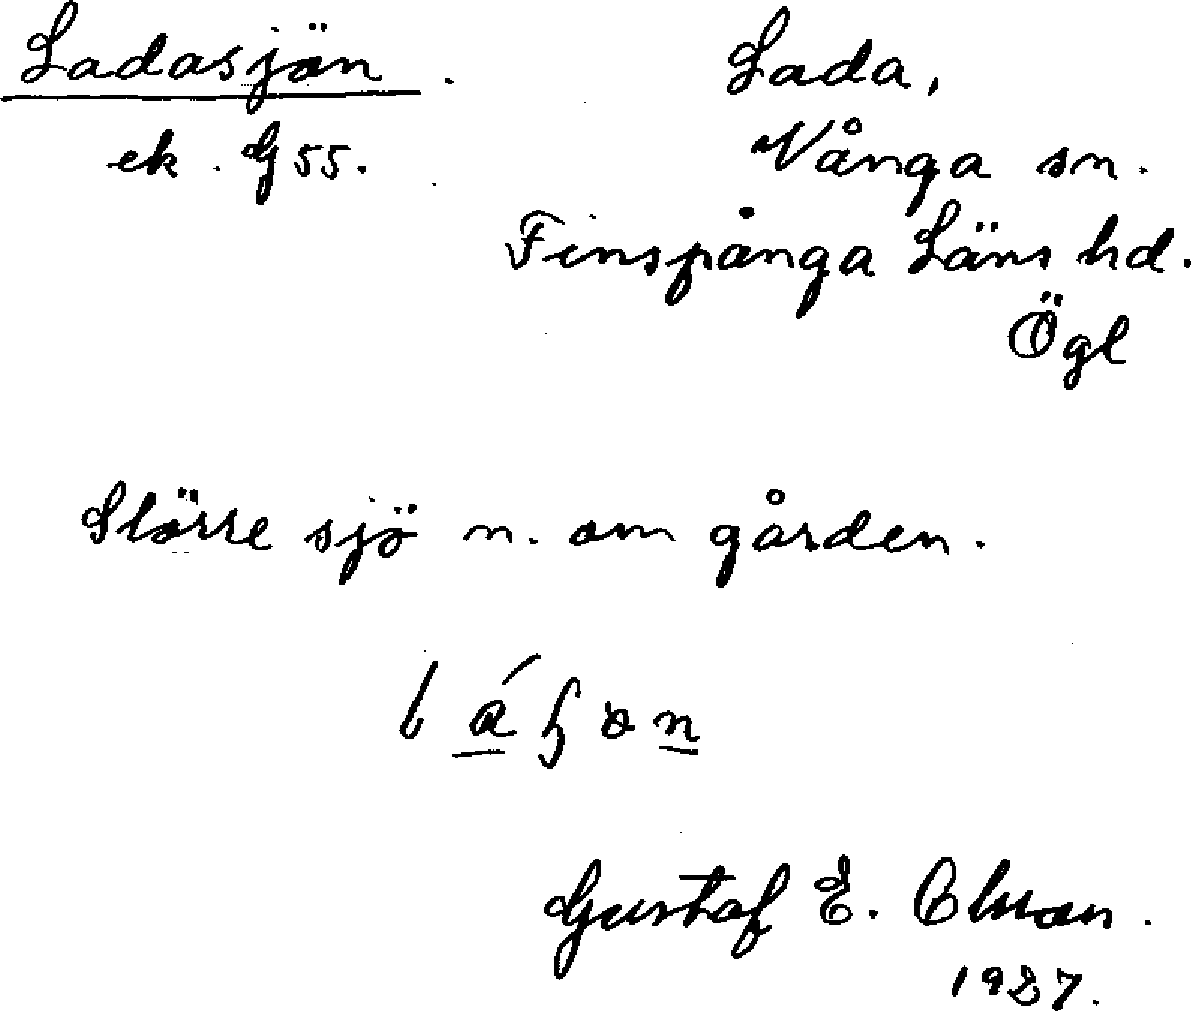 Ladasjön.
ek. G 55.
Lada,
Vånga sn.
Finspånga Läns hd.
Ögl
Större sjö n. om gården.
Gustaf E. Olsson.
1927.